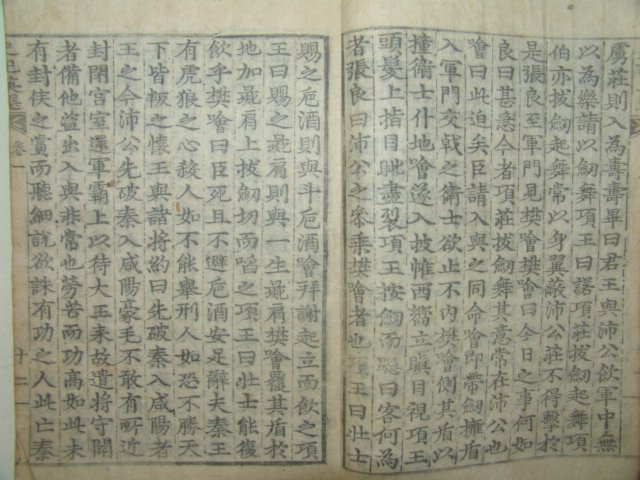 虜莊則入為壽壽畢曰君王與沛公飲軍中無
以為樂請以劒舞項王曰諾項莊拔劒起舞項
伯亦拔劒起舞常以身翼蔽沛公莊不得擊於
是張良至軍門見樊噲樊噲曰今日之事何如
良曰甚急今者項莊拔劒舞其意常在沛公也
噲曰此迫矣臣請入與之同命噲即帶劒擁盾
入軍門交戟之衛士欲止不內樊噲側其盾以
撞衛士仆地噲遂入披帷西嚮立瞋目視項王
頭髮上指目眦盡裂項王按劒而跽曰客何為
者張良曰沛公之參乘樊噲者也王曰壯士
賜之巵酒則與斗巵酒噲拜謝起立而飲之項
王曰賜之彘肩則與一生彘肩樊噲覆其盾於
地加彘肩上拔劒切而啗之項王曰壯士能復
飲乎樊噲曰臣死且不避巵酒安足辭夫秦王
有虎狼之心殺人如不能舉刑人如恐不勝天
下皆叛之懷王與諸將約曰先破秦入咸陽者
王之今沛公先破秦入咸陽豪毛不敢有所近
封閉宮室還軍霸上以待大王來故遣將守關
者備他盜出入與非常也勞苦而功高如此未
有封侯之賞而聽細說欲誅有功之人此亡秦
卷一
十二